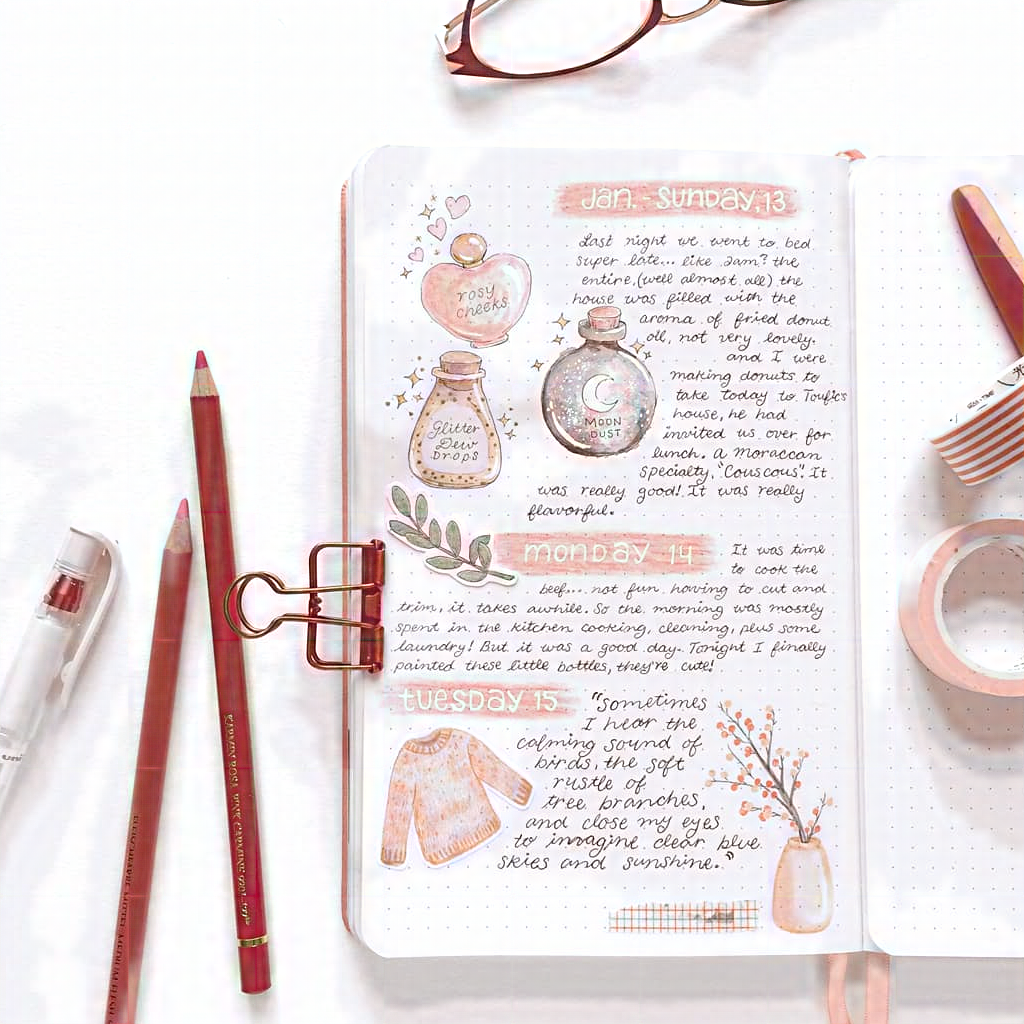 Jan. - Sunday, 13
Last night we went to bed
super late... like 2am? the
entire (well almost all) the
house was filled with the
aroma of fried donut
oil, not very lovely.
and I were
making donuts to
take today to Toufic's
house, he had
invited us over for
lunch. A Moraccan
specialty, "Couscous". It
was really good! It was really
flavorful.
rosy
cheeks
Glitter
Dew
Drops
MOON
DUST
monday 14
It was time
to cook the
beef... not fun having to cut and
trim, it takes awhile. So the morning was mostly
spent in the kitchen cooking, cleaning, plus some
laundry! But it was a good day. Tonight I finally
painted these little bottles, they're cute!
tuesday 15
"Sometimes
I hear the
calming sound of
birds, the soft
rustle of
tree branches,
and close my eyes
to imagine clear blue
skies and sunshine."